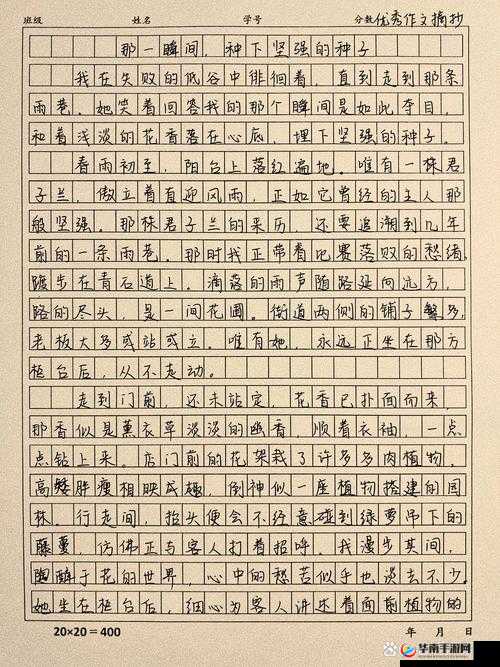 班级 姓名 学号 分数 优秀作文摘抄
那一瞬间，种下坚强的种子
我在失败的低谷中徘徊着，直到走到那条
雨巷。她笑着回答我的那个瞬间是如此夺目，
和着浅淡的花香落在心底，埋下坚强的种子。
春雨初至，阳台上落红遍地。唯有一株君
子兰，傲立着直迎风雨，正如它曾经的主人那
般坚强。那株君子兰的来历，还要追溯到几年
前的一条雨巷。那时我正带着比赛落败的愁绪，
踱步在青石道上。滴落的雨声随路延向远方，
路的尽头，是一间花圃。街道两侧的铺子繁多，
老板大多或站或立。唯有她，永远正坐在那方
柜台后，从不走动。
走到门前，还未站定，花香已扑面而来，
那香似是薰衣草淡淡的幽香，顺着衣袖，一点
点钻上来。店门前的花架栽了许多多肉植物，
高矮胖瘦相映成趣，倒神似一座植物搭建的园
林。行走间，抬头便会不经意碰到绿萝吊下的
藤蔓，仿佛正与客人打着招呼。我漫步其间，
陶醉于花的世界，心中的愁苦似乎也淡去不少。
她坐在柜台后，细心为客人讲述着面前植物的
20×20=400 年 月 日
华南手游网